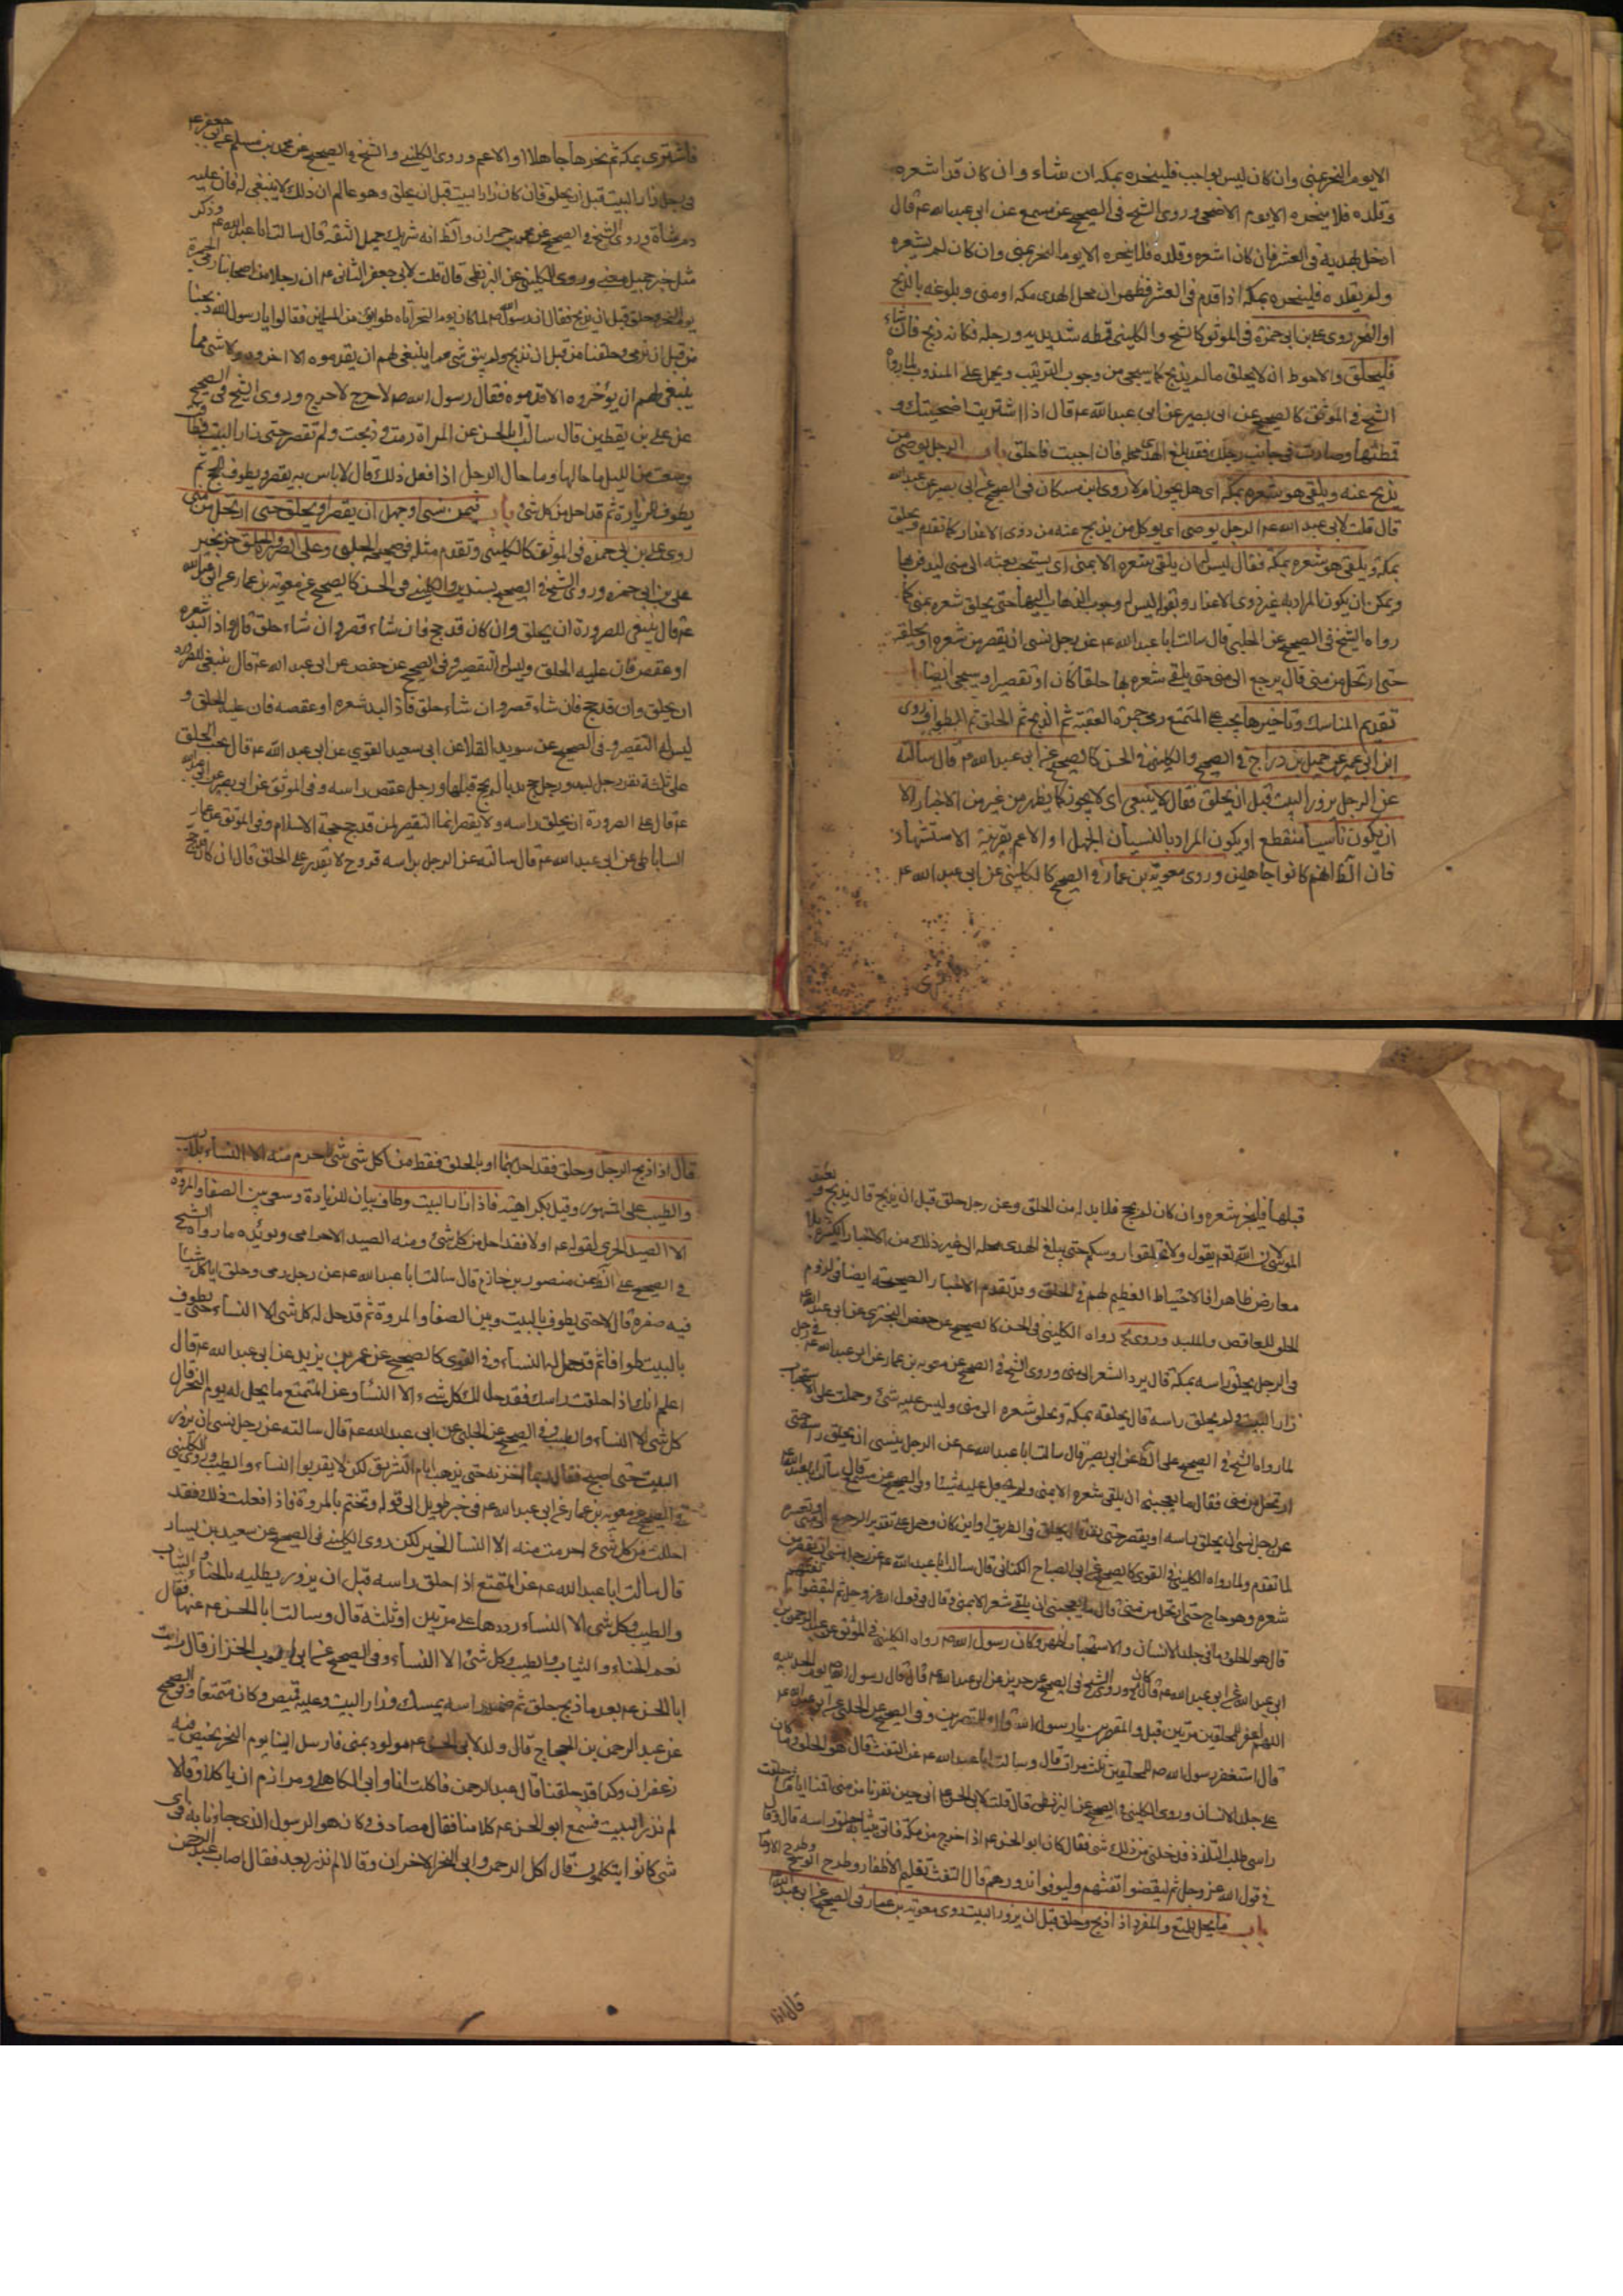 الا يوم النحر بمنى وان كان ليس بواجب فلينحره بمكة ان شاء وان كان قد اشعره
وقلده فلا ينحره الا يوم الاضحى وروى الشيخ في الصحيح عن مسمع عن ابي عبد الله ع قال
اذا دخل بهديه في العشر فان كان اشعره وقلده فلا ينحره الا يوم النحر بمنى وان كان لم يشعره
ولم يقلده فلينحره بمكة اذا قدم في العشر فظهر ان محل الهدى مكة او منى وبلوغه بالذبح
او النحر روى على بن ابي حمزة في الموثق كالشيخ والكليني قمطه شد يديه ورجله فكانه ذبح فان شاء
فليحلق والاحوط ان لا يحلق ما لم يذبح كما سيجي من وجوب الترتيب ويحمل على المندوب لما رواه
الشيخ في الموثق كالصحيح عن ابي بصير عن ابي عبد الله ع قال اذا اشتريت اضحيتك و
قمطتها وصارت في جانب رحلك فقد بلغ الهدى محله فان احببت فاحلق باب الرجل يوصى من
يذبح عنه ويلقى هو شعره بمكة اى هل يجوز ام لا روى ابن مسكان في الصحيح عن ابي بصير عن ابي عبد الله
قال قلت لابي عبد الله ع الرجل يوصى اى يوكل من يذبح عنه من ذوى الاعذار كما تقدم ويحلق
بمكة ويلقى هو شعره بمكة فقال ليس له ان يلقى شعره الا بمنى اى يستحب بعثه الى منى ليدفن بها
ويمكن ان يكون المراد به غير ذوى الاعذار وبقوله ليس له وجوب الذهاب اليها حتى يحلق شعره بمنى كما
رواه الشيخ في الصحيح عن الحلبي قال سالت ابا عبد الله ع عن رجل نسى ان يقصر من شعره او يحلقه
حتى ارتحل من منى قال يرجع الى منى حتى يلقى شعره بها حلقا كان او تقصيرا وسيجي ايضا باب
تقديم المناسك وتاخيرها يجب على المتمتع رمى جمرة العقبة ثم الذبح ثم الحلق ثم الطواف روى
ابن ابي عمير عن جميل بن دراج في الصحيح والكليني في الحسن كالصحيح عن ابي عبد الله ع قال سالته
عن الرجل يزور البيت قبل ان يحلق فقال لا ينبغي اى لا يجوز كما يظهر من غيره من الاخبار الا
ان يكون ناسيا منقطع او يكون المراد بالنسيان الجهل او الاعم بقرينة الاستشهاد
فان الظ انهم كانوا جاهلين وروى معوية بن عمار في الصحيح كالكليني عن ابي عبد الله ع
فاشترى بمكة ثم نحرها جاهلا او الاعم وروى الكليني والشيخ في الصحيح عن محمد بن مسلم عن ابي جعفر ع
في رجل زار البيت قبل ان يحلق فقال ان كان زار البيت قبل ان يحلق وهو عالم ان ذلك لا ينبغي له فان عليه
دم شاة وروى الشيخ في الصحيح عن محمد بن حمران والظ انه شريك جميل الثقة قال سالت ابا عبد الله ع وذكر
مثل خبر جميل بمعنى وروى الكليني عن البزنطي قال قلت لابي جعفر الثاني ع ان رجلا من اصحابنا رمى الجمرة
يوم النحر وحلق قبل ان يذبح فقال ان رسول الله ص لما كان يوم النحر اتاه طوايف من المسلمين فقالوا يا رسول الله ذبحنا
من قبل ان نرمى وحلقنا من قبل ان نذبح ولم يبق شي مما ينبغي لهم ان يقدموه الا اخروه ولا شي مما
ينبغي لهم ان يؤخروه الا قدموه فقال رسول الله ص لا حرج لا حرج وروى الشيخ في الصحيح
عن علي بن يقطين قال سالت ابا الحسن عن المراة رمت وذبحت ولم تقصر حتى زار البيت فطافت
وسعت من الليل ما حالها وما حال الرجل اذا فعل ذلك قال لا باس به يقصر ويطوف للحج ثم
يطوف للزيارة ثم قد احل من كل شئ باب فيمن نسى او جهل ان يقصر او يحلق حتى ارتحل من منى
روى على بن ابي حمزه في الموثق كالكليني وتقدم مثله في صحيح الحلبي وعلى الصرورة الحلق
على بن ابي حمزه وروى الشيخ في الصحيح بسندين والكليني في الحسن كالصحيح عن معوية بن عمار عن ابي عبد الله
ع قال ينبغي للصرورة ان يحلق وان كان قد حج فان شاء قصر وان شاء حلق قال واذا لبد شعره
او عقصه فان عليه الحلق وليس له التقصير وفي الصحيح عن حفص عن ابي عبد الله ع قال ينبغي للصرورة
ان يحلق وان قد حج فان شاء قصر وان شاء حلق فاذا لبد شعره او عقصه فان عليه الحلق و
ليس له التقصير وفي الصحيح عن سويد القلا عن ابي سعيد القوى عن ابي عبد الله ع قال يجب الحلق
على ثلثة نفر رجل لبد ورجل حج بدا لم يحج قبلها ورجل عقص راسه وفي الموثق عن ابي بصير عن ابي عبد الله
ع قال على الصرورة ان يحلق راسه ولا يقصر انما التقصير لمن قد حج حجة الاسلام وفي الموثق عن عمار
الساباطي عن ابي عبد الله ع قال سالته عن الرجل براسه قروح لا يقدر على الحلق قال ان كان قد حج
قبلها فليجز شعره وان كان لم يحج فلا بد له من الحلق وعن رجل حلق قبل ان يذبح قال يذبح ويعيد
الموسى لان الله تعم يقول ولا تحلقوا روسكم حتى يبلغ الهدى محله الى غير ذلك من الاخبار الكثيرة بلا
معارض ظاهرا فالاحتياط العظيم لهم في الحلق وقد تقدم الاخبار الصحيحة ايضا في لزوم
الحلق للعاقص والملبد وروى رواه الكليني في الحسن كالصحيح عن حفص البختري عن ابي عبد الله ع
في الرجل يحلق راسه بمكة قال يرد الشعر الى منى وروى الشيخ في الصحيح عن معوية بن عمار عن ابي عبد الله ع في رجل
زار البيت ولم يحلق راسه قال يحلقه بمكة ويحمل شعره الى منى وليس عليه شئ وحملت على الاستحباب
لما رواه الشيخ في الصحيح على الظ عن ابي بصير قال سالت ابا عبد الله ع عن الرجل ينسى ان يحلق راسه حتى
ارتحل من منى فقال ما يعجبني ان يلقى شعره الا بمنى ولم يجعل عليه شيئا وفي الصحيح عن مسمع قال سالت ابا عبد الله ع
عن رجل نسى ان يحلق راسه او يقصر حتى نفر قال يحلق في الطريق او اين كان وحمل على تقدير الرجوع الى منى
لما تقدم ولما رواه الكليني في القوى كالصحيح عن ابي الصباح الكناني قال سالت ابا عبد الله ع عن رجل نسى ان يقصر من
شعره وهو حاج حتى ارتحل من منى قال ما يعجبني ان يلقى شعره الا بمنى وقال في قول الله عز وجل ثم ليقضوا تفثهم
قال هو الحلق وما في جلد الانسان والاستحباب اظهر وكان رسول الله ص رواه الكليني في الموثق عن عبد الرحمن بن
ابي عبد الله عن ابي عبد الله ع قال كان وروى الشيخ في الصحيح عن حريز عن ابي عبد الله ع قال قال رسول الله ص يوم الحديبية
اللهم اغفر للمحلقين مرتين قيل والمقصرين يا رسول الله قال وللمقصرين وفي الصحيح عن الحلبي عن ابي عبد الله ع
قال استغفر رسول الله ص للمحلقين ثلث مرات قال وسالت ابا عبد الله ع عن التفث قال هو الحلق وما كان
على جلد الانسان وروى الكليني في الصحيح عن البزنطي قال قلت لابي الحسن ع انا حين نفرنا من منى اقمنا اياما ثم حلقت
راسي طلب التلذذ فدخلني من ذلك شي فقال كان ابو الحسن ع اذا خرج من مكة فاتى بثيابه حلق راسه قال وقال
في قول الله عز وجل ثم ليقضوا تفثهم وليوفوا نذورهم قال التفث تقليم الاظفار وطرح الوسخ وطرح الاحرام
باب ما يحل للمتمتع والمفرد اذا ذبح وحلق قبل ان يزور البيت روى معوية بن عمار في الصحيح عن ابي عبد الله
قال اذا
قال اذا ذبح الرجل وحلق فقد احل بهما او بالحلق فقط من كل شي احرم منه الا النساء
والطيب على المشهور وقيل بكراهيته فاذا زار البيت وطاف بيان للزيادة وسعى بين الصفا والمروة
الا الصيد الحرمي لقوله ع اولا فقد احل من كل شئ ومنه الصيد الاحرامى ويؤيده ما رواه الشيخ
في الصحيح على الظ عن منصور بن حازم قال سالت ابا عبد الله ع عن رجل رمى وحلق اياكل شيئا
فيه صفرة قال لا حتى يطوف بالبيت وبين الصفا والمروة ثم قد حل له كل شي الا النساء حتى يطوف
بالبيت طوافا ثم قد حل له النساء وفي القوى كالصحيح عن عمر بن يزيد عن ابي عبد الله ع قال
اعلم انك اذا حلقت راسك فقد حل لك كل شيء الا النساء وعن المتمتع ما يحل له يوم النحر قال
كل شي الا النساء والطيب وفي الصحيح عن الحلبي عن ابي عبد الله ع قال سالته عن رجل نسى ان يزور
البيت حتى اصبح فقال ربما اخرته حتى تذهب ايام التشريق لكن لا يقربوا النساء والطيب وروى الكليني
في الصحيح عن معوية بن عمار عن ابي عبد الله ع في خبر طويل الى قوله وتختم بالمروة فاذا فعلت ذلك فقد
احللت من كل شئ احرمت منه الا النساء الخبر لكن روى الكليني في الصحيح عن سعيد بن يسار
قال سالت ابا عبد الله ع عن المتمتع اذا حلق راسه قبل ان يزور يطليه بالحناء والثياب
والطيب وكل شي الا النساء رددها على مرتين او ثلثة قال وسالت ابا الحسن ع عنها فقال
نعم الحناء والثياب والطيب وكل شئ الا النساء وفي الصحيح عن ابي ايوب الخزاز قال رايت
ابا الحسن ع بعد ما ذبح حلق ثم ضمد راسه بمسك وزار البيت وعليه قميص وكان متمتعا وفي الصحيح
عن عبد الرحمن بن الحجاج قال ولد لابي الحسن ع مولود بمنى فارسل الينا يوم النحر بخبيص فيه
زعفران وكنا قد حلقنا قال عبد الرحمن فاكلت انا وابى الكاهلى ومرازم ان ياكلا وقالا
لم نزر البيت فسمع ابو الحسن ع كلامنا فقال لمصادف وكان هو الرسول الذى جاءنا به في اى
شي كانوا يتكلمون قال اكل عبد الرحمن وابى الاخران وقالا لم نزر بعد فقال اصاب عبد الرحمن